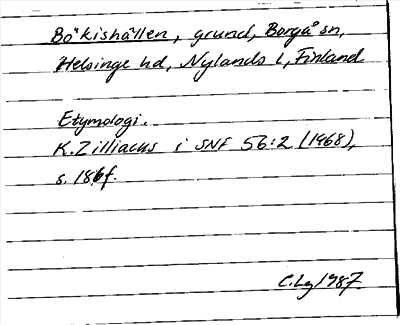 Bökishällen, grund, Borgå sn,
Helsinge hd, Nylands l, Finland
Etymologi.
K. Zilliacus i SNF 56:2 (1968),
s. 186f.
C. Lg 1987.